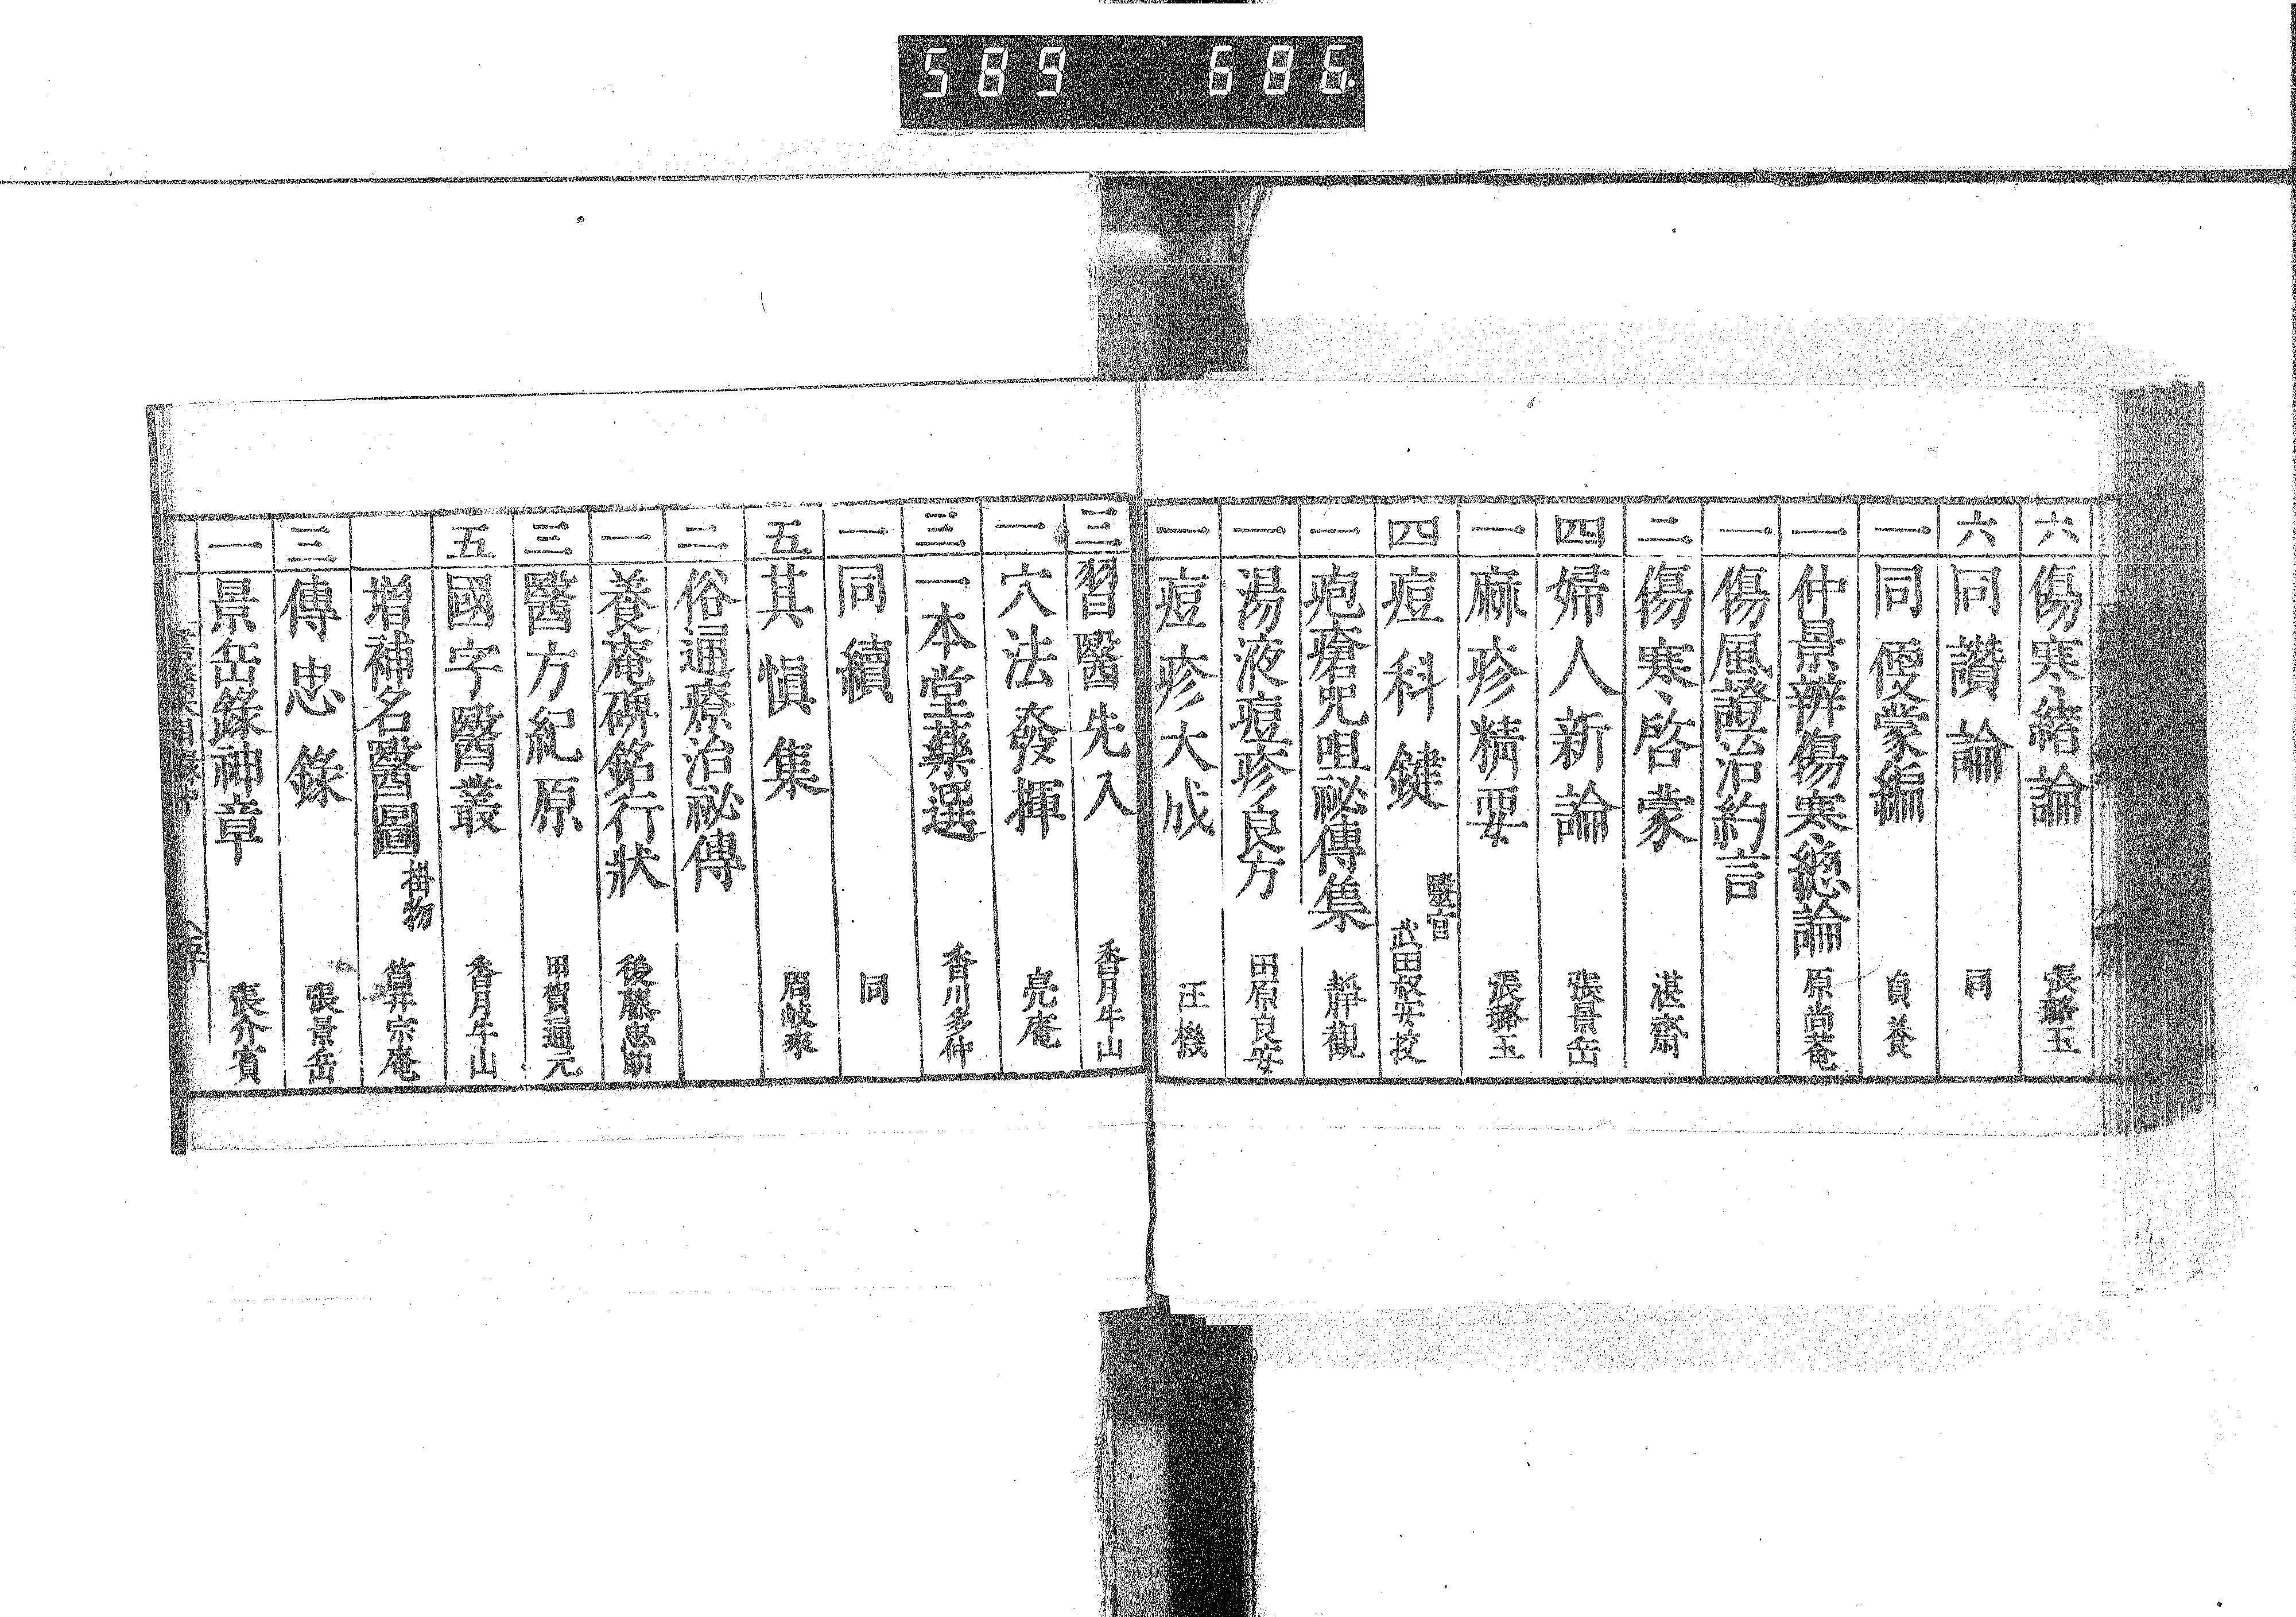 589 686.
六 傷寒緒論 張璐玉
六 同讚論 同
一 同便蒙編 貞養
一 仲景辨傷寒總論 原尚菴
一 傷風證治約言
二 傷寒啓蒙 湛齋
四 婦人新論 張景岳
一 麻疹精要 張璐玉
四 痘科鍵 醫官 武田叔安校
一 疱瘡咒咀祕傳集 靜觀
一 湯液痘疹良方 田原良安
一 痘疹大成 汪機
三 習醫先入 香月牛山
一 穴法發揮 亮庵
三 一本堂藥選 香川多仲
一 同續 同
五 其愼集 周岐來
二 俗通療治祕傳
一 養庵碑銘行狀 後藤忠助
三 醫方紀原 甲賀通元
五 國字醫叢 香月牛山
增補名醫圖 掛物 筒井宗庵
三 傳忠錄 張景岳
一 景岳錄神章 張介賓